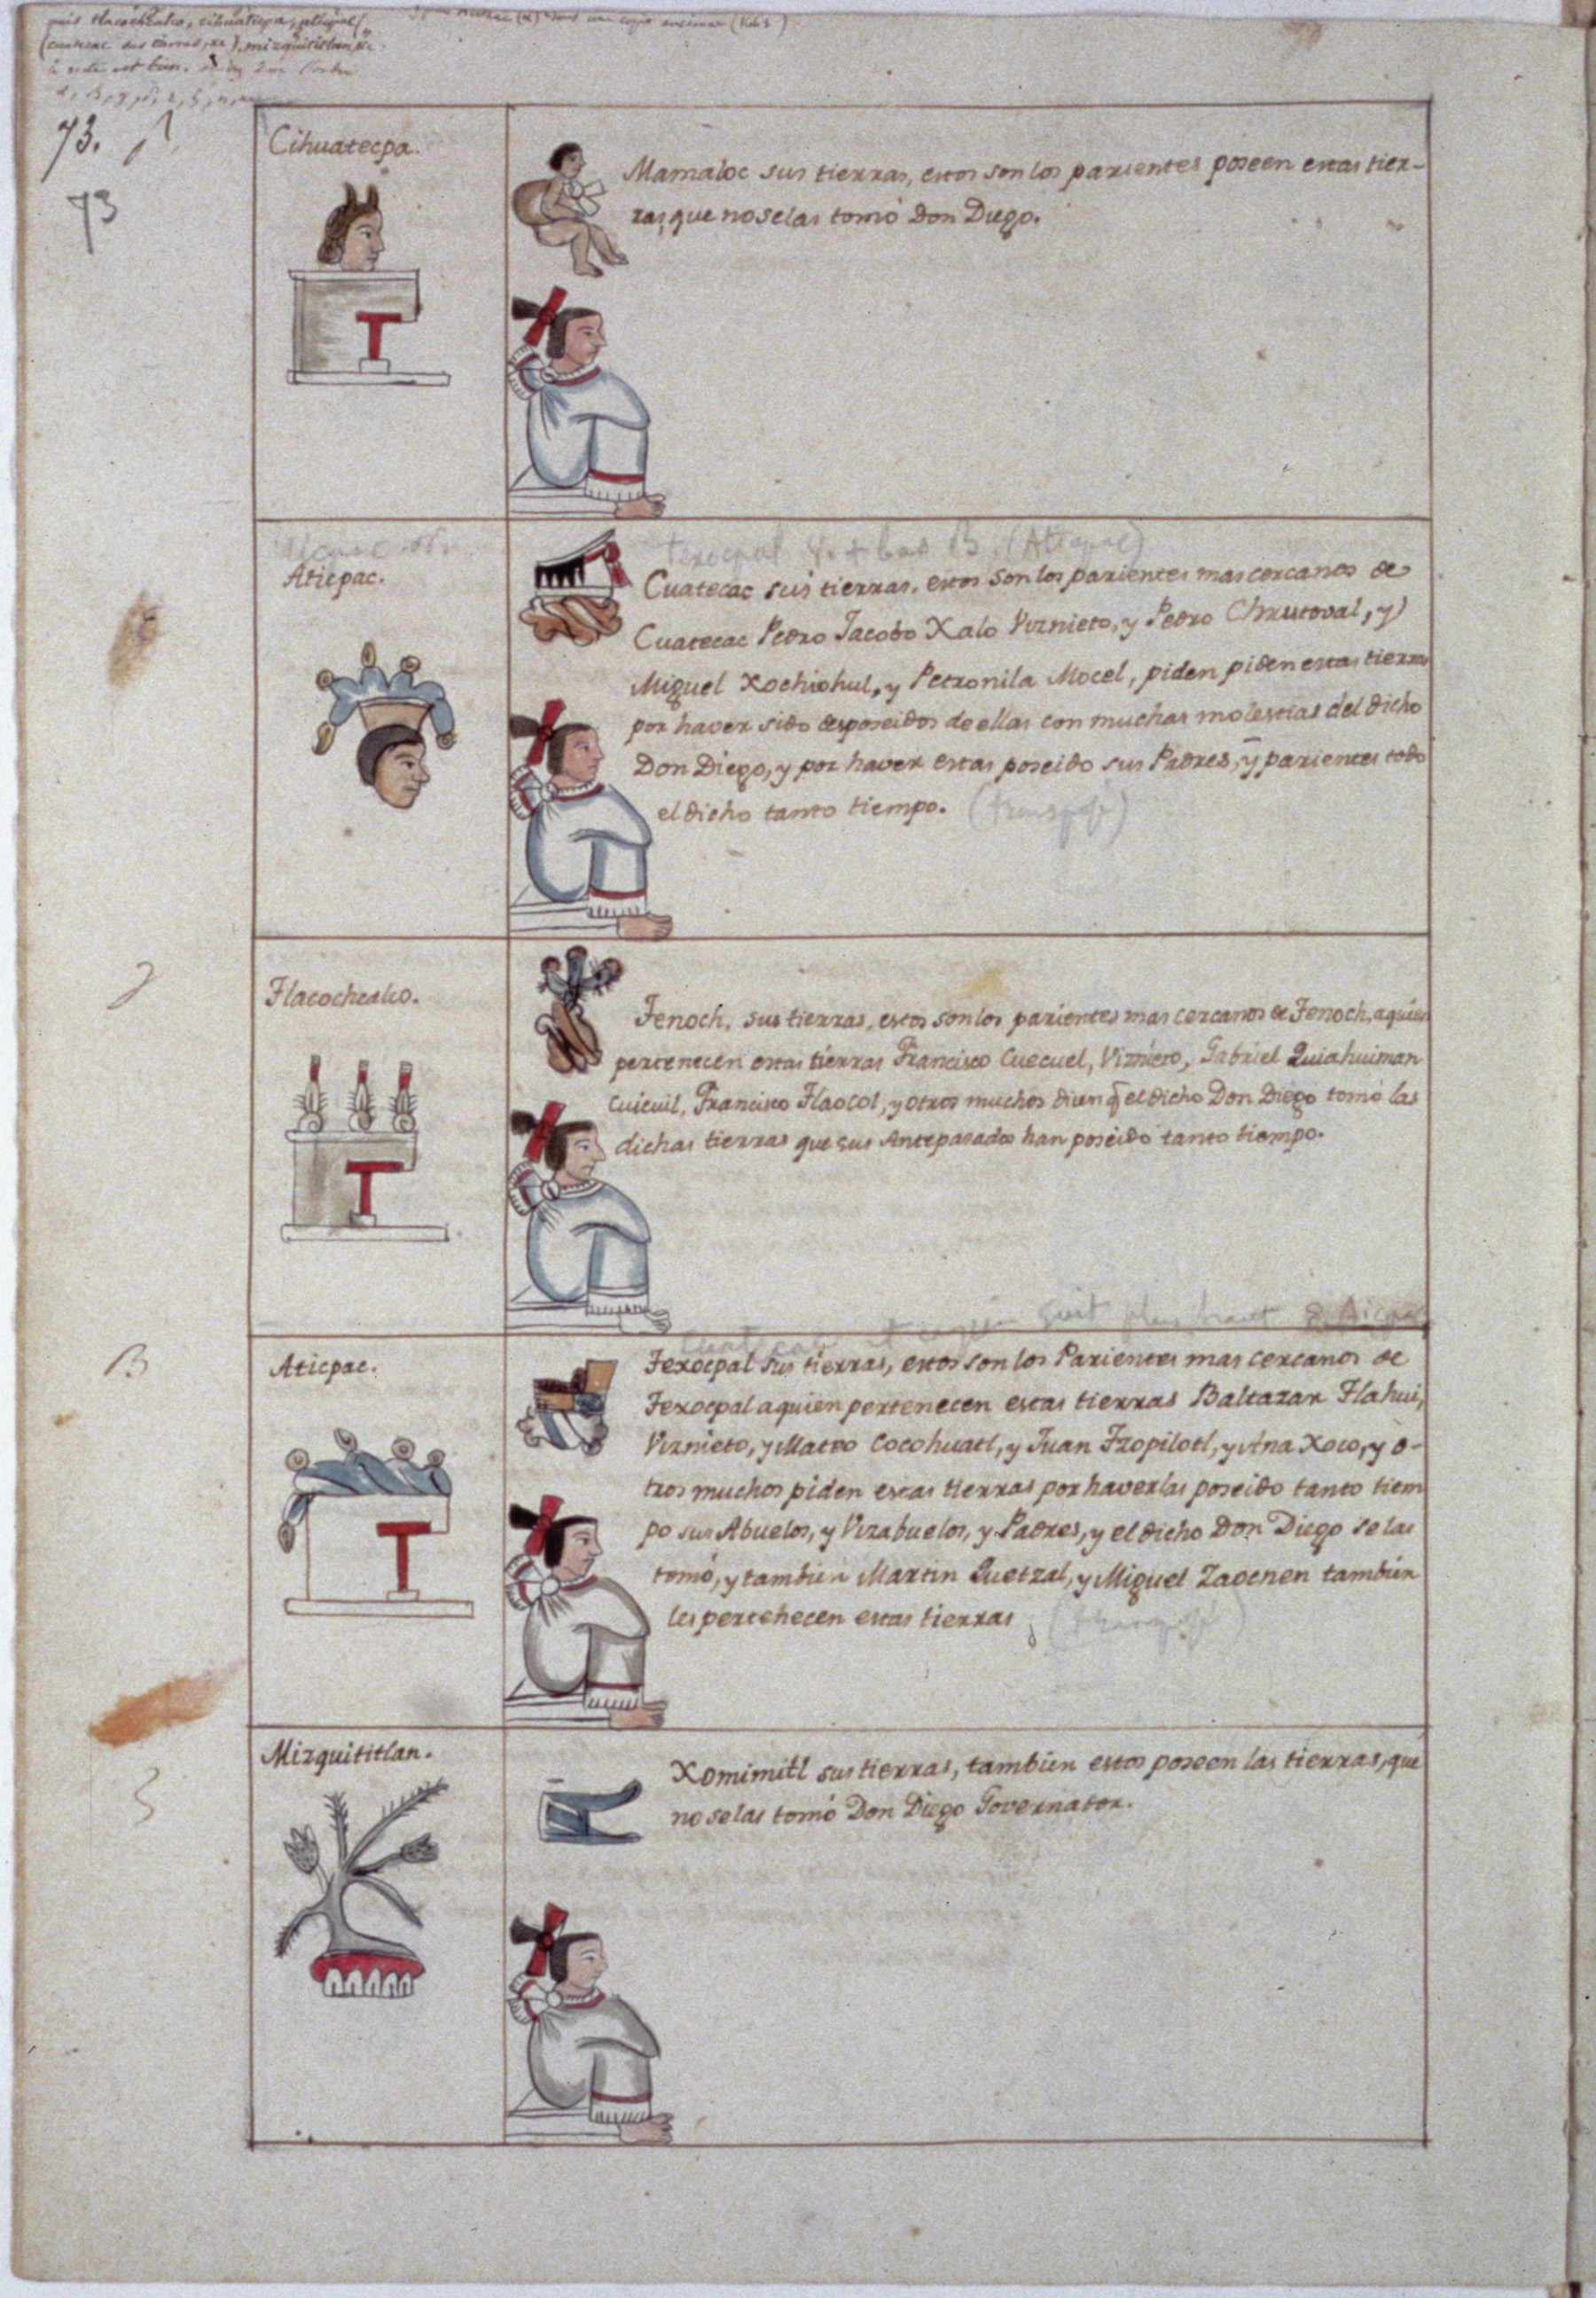 puis tlacochcalco, cihuatecpa, aticpac
(cuatecac sus tierras, &c), mizquititlan, &c.
le reste est bien.
73.
73
Cihuatecpa.
Mamaloc sus tierras, estos son los parientes poseen estas tier-
ras, que no se las tomó Don Diego.
Aticpac.
texocpal + bas B. (Aticpac)
Cuatecac sus tierras, estos son los parientes mas cercanos de
Cuatecac Pedro Jacobo Xalo Viznieto, y Pedro Christoval, y
Miguel Xochiohul, y Petronila Mocel, piden piden estas tierras
por haver sido desposeidos de ellas con muchas molestias del dicho
Don Diego, y por haver estas poseido sus Padres, y parientes todo
el dicho tanto tiempo.
Tlacochcalco.
Tenoch, sus tierras, estos son los parientes mas cercanos de Tenoch, a quien
pertenecen estas tierras Francisco Cuecuel, Viznieto, Gabriel Quiahuiman
Cuicuil, Francisco Tlaocol, y otros muchos dicen q̃ el dicho Don Diego tomó las
dichas tierras que sus Antepasados han poseido tanto tiempo.
suit plus haut
B
Aticpac.
Texocpal sus tierras, estos son los Parientes mas cercanos de
Texocpal a quien pertenecen estas tierras Baltazar Tlahui,
Viznieto, y Mateo Cocohuatl, y Juan Tzopilotl, y Ana Xoco, y o-
tros muchos piden estas tierras por haverlas poseido tanto tiem
po sus Abuelos, y Vizabuelos, y Padres, y el dicho Don Diego se las
tomó, y tambien Martin Quetzal, y Miguel Zaocnen tambien
les pertenecen estas tierras
Mizquititlan.
Xomimitl sus tierras, tambien estos poseen las tierras, que
no se las tomó Don Diego Governator.